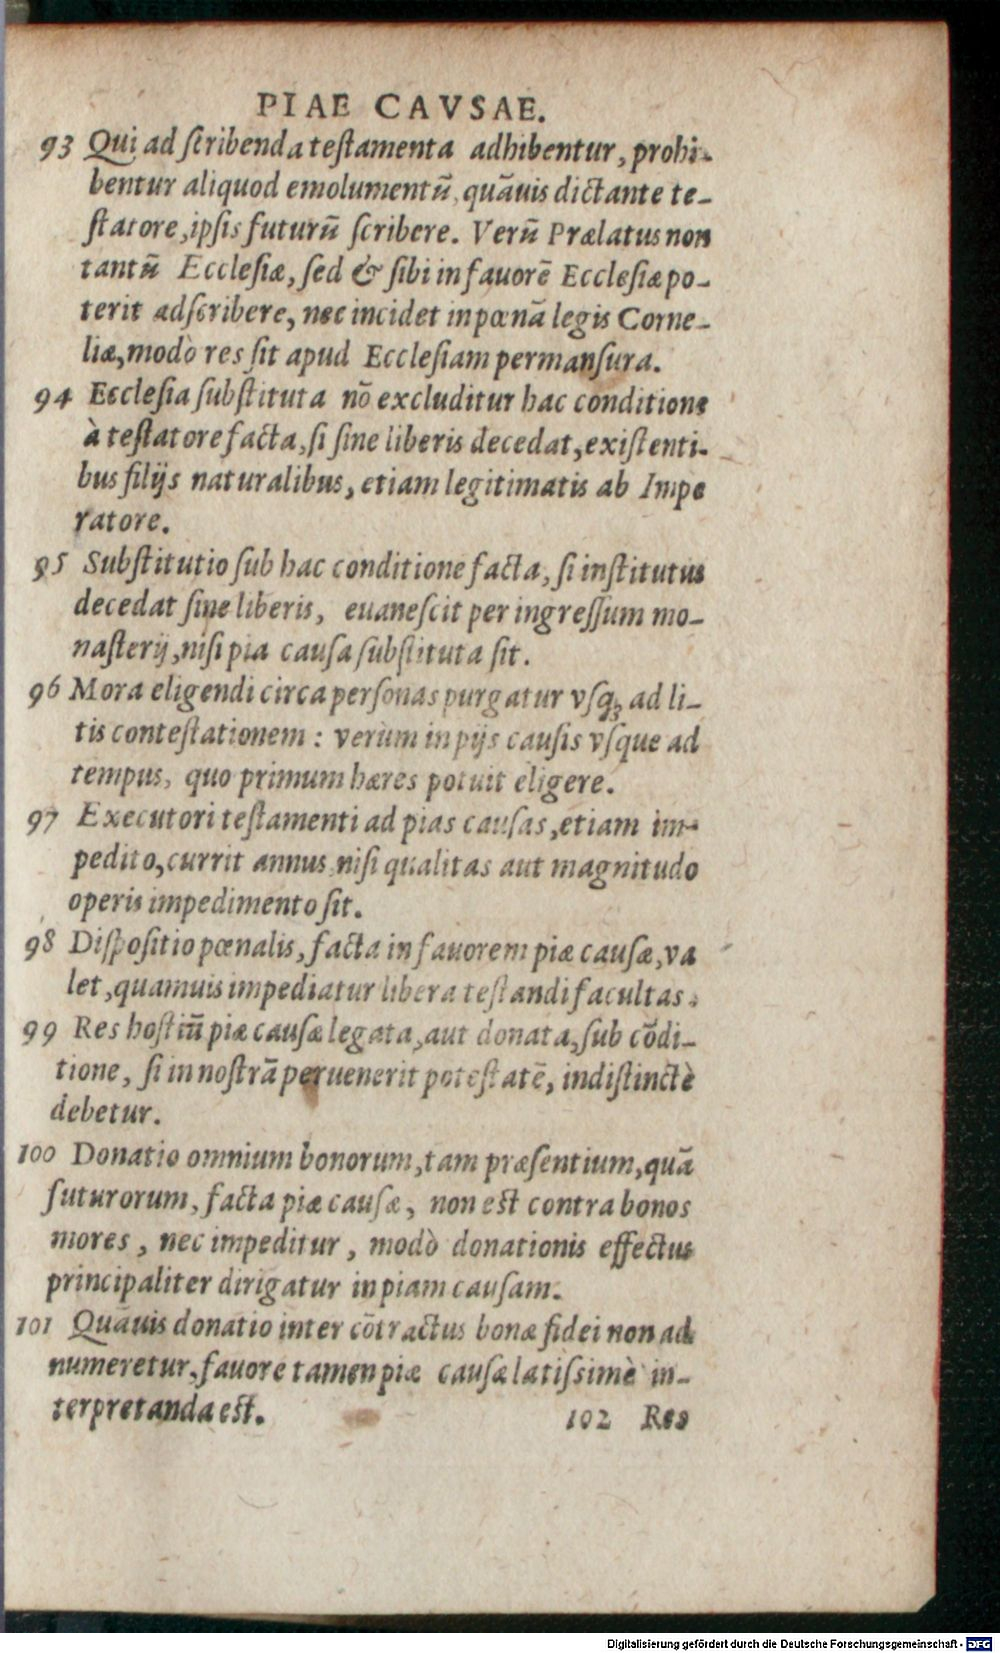 PIAE CAVSAE.
93 Qui ad ſcribenda teſtamenta adhibentur, prohi-
bentur aliquod emolumentũ, quãuis dictante te-
ſtatore, ipſis futurũ ſcribere. Verũ Prælatus non
tantũ Eccleſiæ, ſed & ſibi in fauorẽ Eccleſiæ po-
terit adſcribere, nec incidet in pœnã legis Corne-
liæ, modò res ſit apud Eccleſiam permanſura.
94 Eccleſia ſubſtituta nõ excluditur hac conditione
à teſtatore facta, ſi ſine liberis decedat, exiſtenti-
bus filijs naturalibus, etiam legitimatis ab Impe
ratore.
95 Subſtitutio ſub hac conditione facta, ſi inſtitutus
decedat ſine liberis, euaneſcit per ingreſſum mo-
naſterij, niſi pia cauſa ſubſtituta ſit.
96 Mora eligendi circa perſonas purgatur vſq; ad li-
tis conteſtationem : verùm in pijs cauſis vſque ad
tempus, quo primum hæres potuit eligere.
97 Executori teſtamenti ad pias cauſas, etiam im-
pedito, currit annus niſi qualitas aut magnitudo
operis impedimento ſit.
98 Diſpoſitio pœnalis, facta in fauorem piæ cauſæ, va
let, quamuis impediatur libera teſtandi facultas.
99 Res hoſtiũ piæ cauſæ legata, aut donata, ſub cõdi-
tione, ſi in noſtrã peruenerit poteſtatẽ, indiſtinctè
debetur.
100 Donatio omnium bonorum, tam præſentium, quã
futurorum, facta piæ cauſæ, non eſt contra bonos
mores, nec impeditur, modò donationis effectus
principaliter dirigatur in piam cauſam.
101 Quãuis donatio inter cõtractus bonæ fidei non ad
numeretur, fauore tamen piæ cauſæ latiſsimè in-
terpretanda eſt.
102 Res
Digitalisierung gefördert durch die Deutsche Forschungsgemeinschaft - DFG